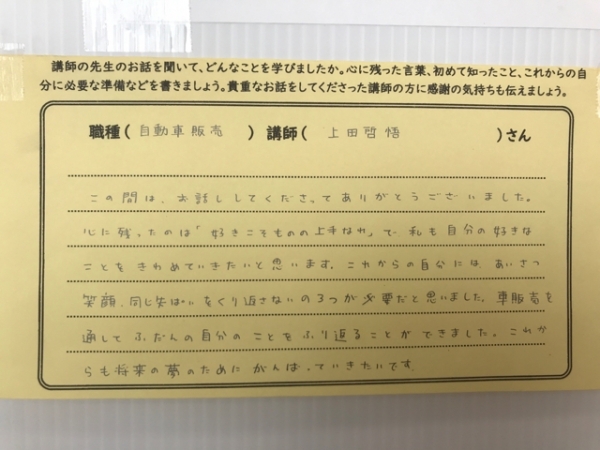 講師の先生のお話を聞いて、どんなことを学びましたか。心に残った言葉、初めて知ったこと、これからの自
分に必要な準備などを書きましょう。貴重なお話をしてくださった講師の方に感謝の気持ちも伝えましょう。
職種( 自動車販売 ) 講師( 上田哲悟 )さん
この間は、お話ししてくださってありがとうございました。
心に残ったのは「好きこそものの上手なれ」で、私も自分の好きな
ことをきわめていきたいと思います。これからの自分には、あいさつ
笑顔、同じ失ぱいをくり返さないの3つが必要だと思いました。車販売を
通してふだんの自分のことをふり返ることができました。これか
らも将来の夢のためにがんばっていきたいです